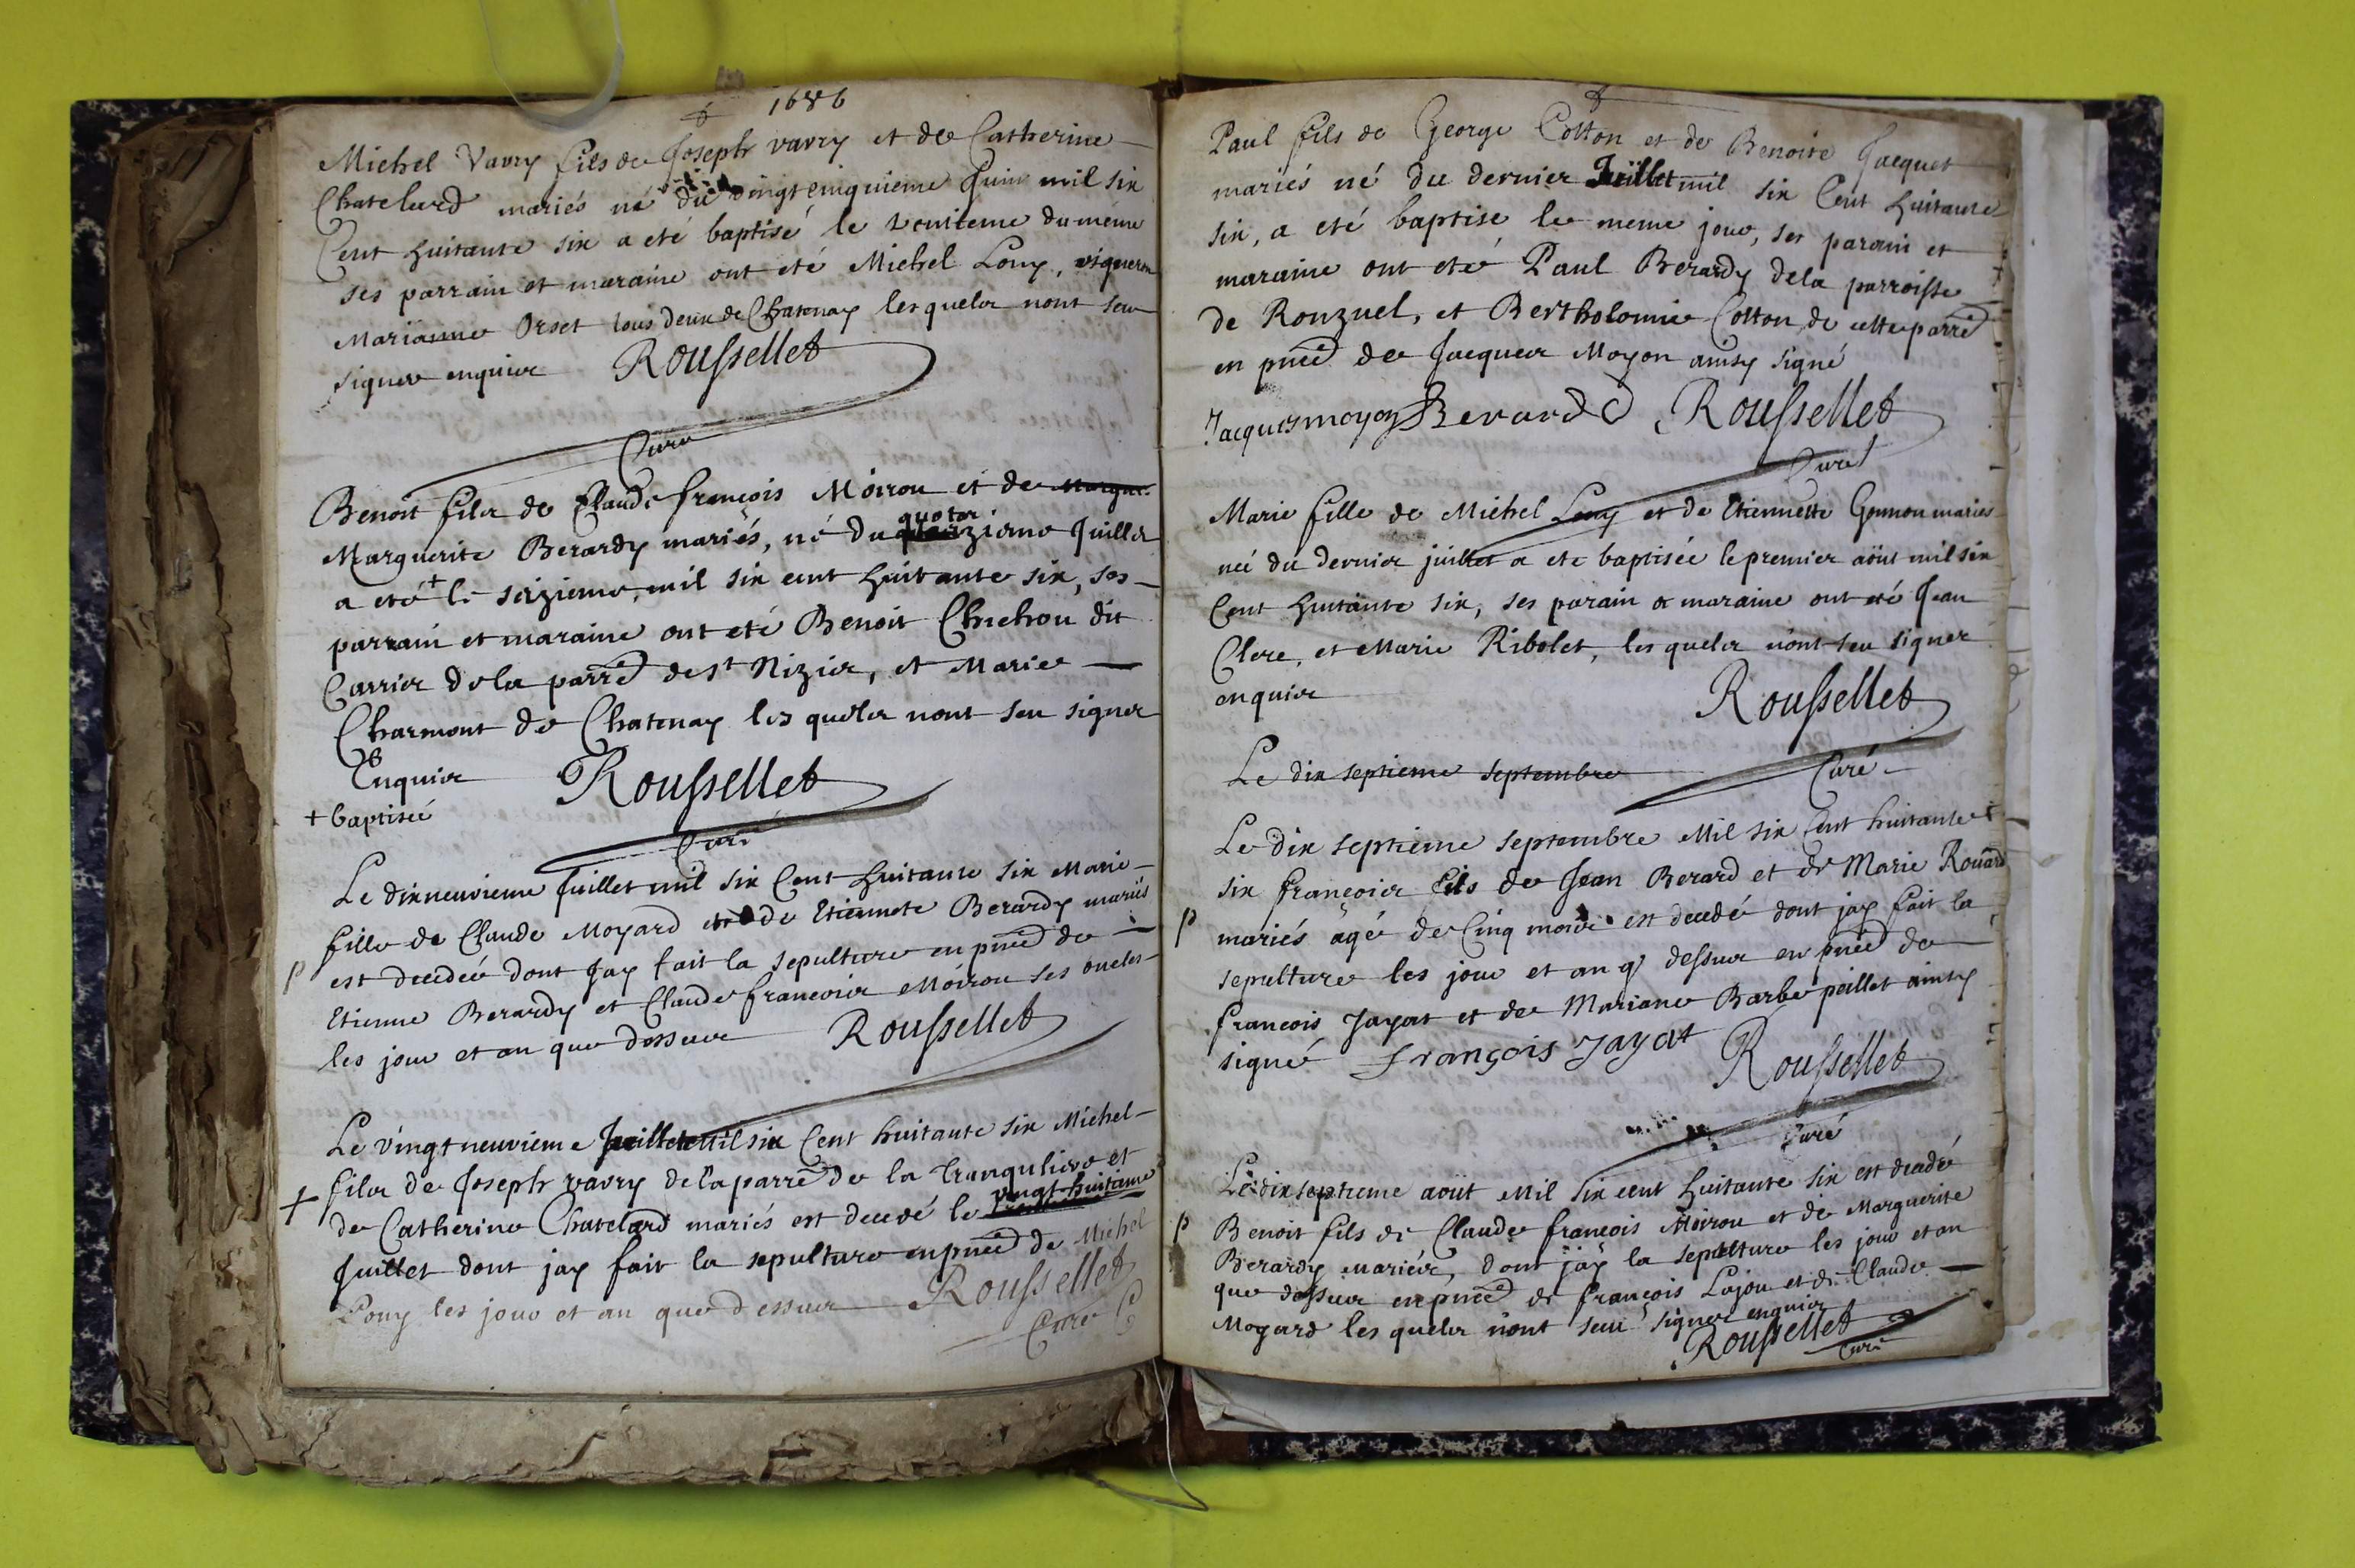 1686
Michel Vavry fils de Joseph vavry et de Catherine
Chatelard mariés né du vingt cinquieme Juin mil six
Cent huitante six a eté baptisé le du méme
ses parrain et maraine ont eté Michel Lony, vigneron
Marianne Orset tous deux de Chatenay lesquels nont seu
signer enquis Roussellet
Curé
Benoit fils de Claude françois Moirou et de
Marguerite Berardy mariés, né du quator zieme Juillet
a eté + le seizieme, mil six cent huitante six, ses
parrain et maraine ont eté Benoit Chichou dit
Carrier de la parre de st Nizier, et Marie
Charmont de Chatenay les quels nont seu signer
Enquis Roussellet
+ baptiséé
Curé
Le dixneuvieme Juillet mil six Cent huitante six Marie
fille de Claude Moyard et de Etiennete Berardy mariés
p est decedeé dont Jay fait la sepulture en pnce de
Etienne Berardy et Claude francois Moirou ses oncles
les jour et an que dessus Roussellet
Le vingt neuvieme Juillet mil six Cent huitante six Michel
fils de Joseph vavry de la parre de la Tranquliere et
+ de Catherine Chatelard mariés est decedé le vingt huitieme
Juillet dont jay fait la sepulture en pnce de Michel
Lony les jour et an que dessus Roussellet
Curé
Paul fils de George Cotton et de Benoite Jacquet
mariés né du dernier Juillet mil six Cent huitante
six, a eté baptise le meme jour, ses parain et
maraine ont eté Paul Berardy dela parroisse
de Ronzuel, et Bertholomie Cotton, de cette parre
en pnce de Jacques Moyon ainsy signé
Jacques moyon Berard Roussellet
Curé
Marie fille de Michel Lony et de Etiennette Gonnon mariés
neé du dernier juillet a ete baptisée le premier aöut mil six
Cent huitante six, ses parain & maraine ont eté Jean
Clere, et Marie Ribolet, les quels n'ont seu signer
enquis Roussellet
Le dix septieme septembre Curé
Le dix septieme septembre Mil six Cent huitante
six francois fils de Jean Berard et de Marie Rouard
p mariés agé de Cinq mois est decedé dont jay fait la
sepulture les jour et an q dessus en pnce de
francois Jayat et de Mariane Barbe peillet ainsy
signé françois Jayat Roussellet
Curé
Le dix septieme aoüt Mil six cent huitante six est decedé
p Benoit fils de Claude francois Moirou et de Marguerite
Berardy mariés, dont jaÿ la sepulture les jour et an
que dessus en pnce de francois Lojou et de Claude
Moyard les quels n'ont seu signer enquis
Roussellet
Curé